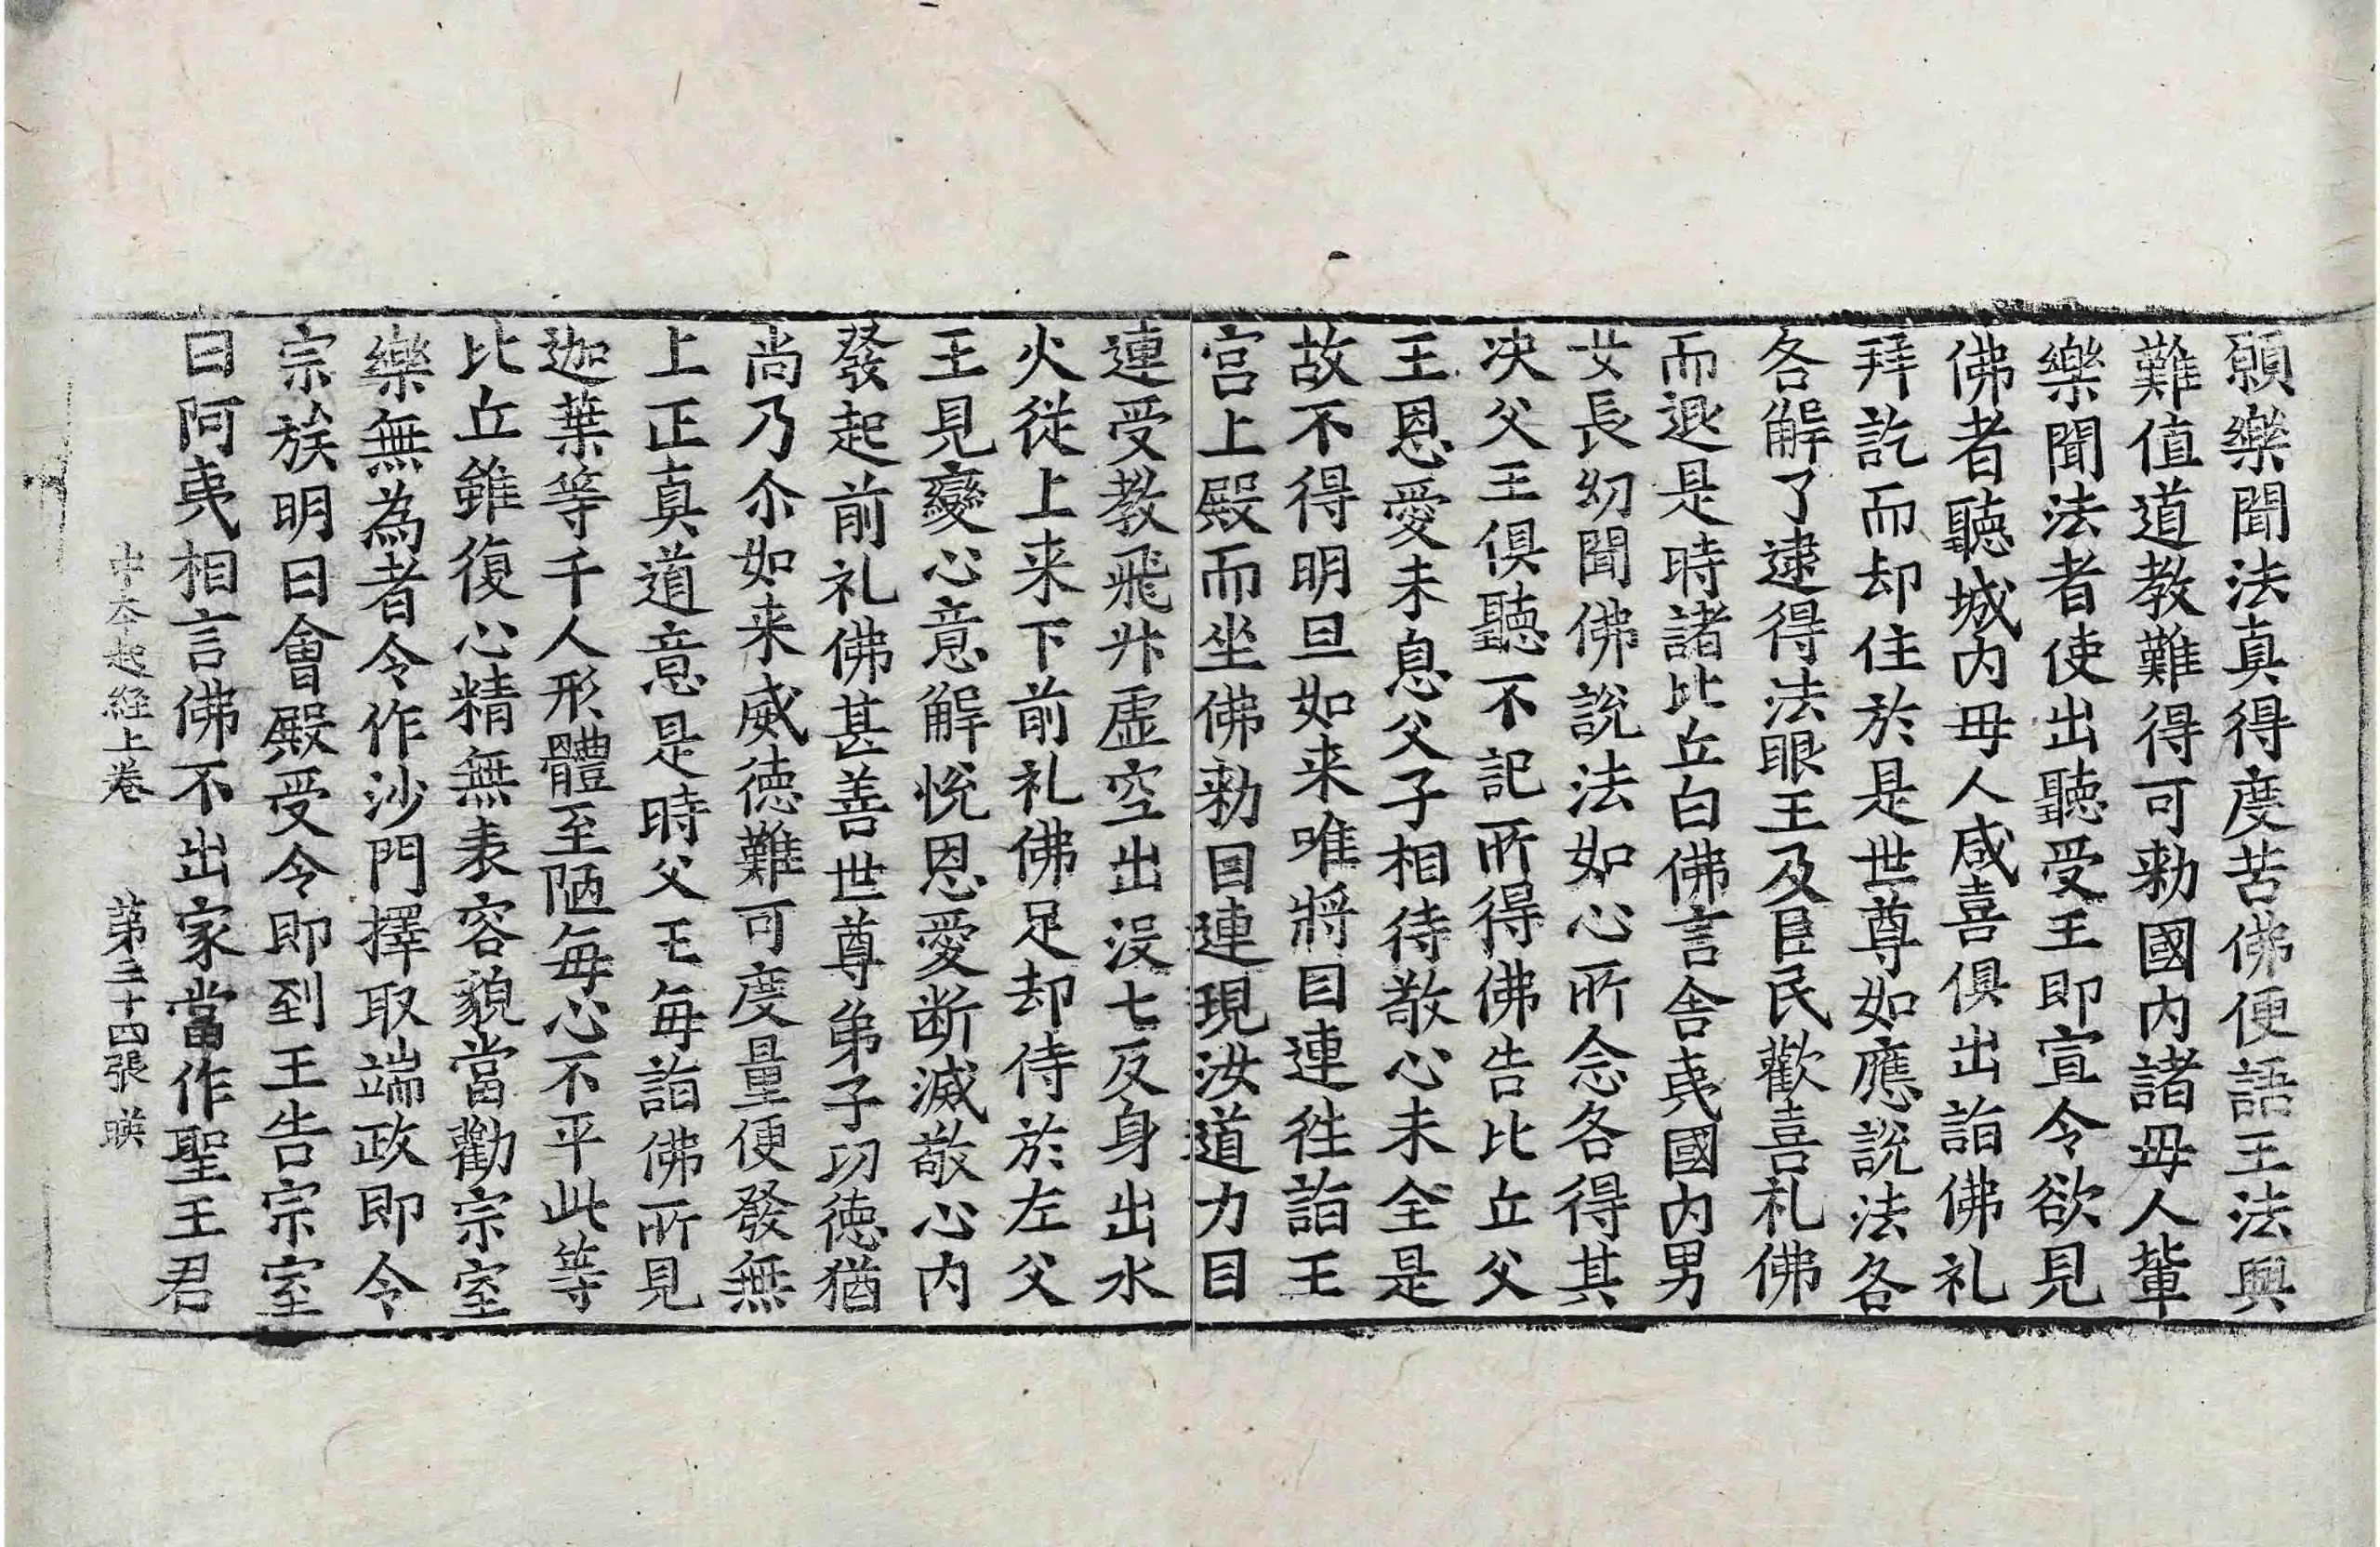 願樂聞法真得度苦佛便語王法興
難值道教難得可勑國内諸母人輩
樂聞法者使出聽受王即宣令欲見
佛者聽城内母人咸喜俱出詣佛礼
拜訖而却住於是世尊如應說法各
各解了逮得法眼王及臣民歡喜礼佛
而退是時諸比丘白佛言舍夷國内男
女長幼聞佛說法如心所念各得其
决父王俱聽不記所得佛告比丘父
王恩愛未息父子相待敬心未全是
故不得明旦如来唯將目連徃詣王
宫上殿而坐佛勑目連現汝道力目
連受教飛升虚空出没七反身出水
火從上来下前礼佛足却侍於左父
王見變心意解恱恩愛断滅敬心内
發起前礼佛甚善世尊弟子功徳猶
尚乃尒如来威徳難可度量便發無
上正真道意是時父王每詣佛所見
迦葉等千人形體至陋每心不平此等
比丘雖復心精無表容貌當勸宗室
樂無為者令作沙門擇取端政即令
宗族明日會殿受令即到王告宗室
曰阿夷相言佛不出家當作聖王君
中本起經上卷 第三十四張 暎